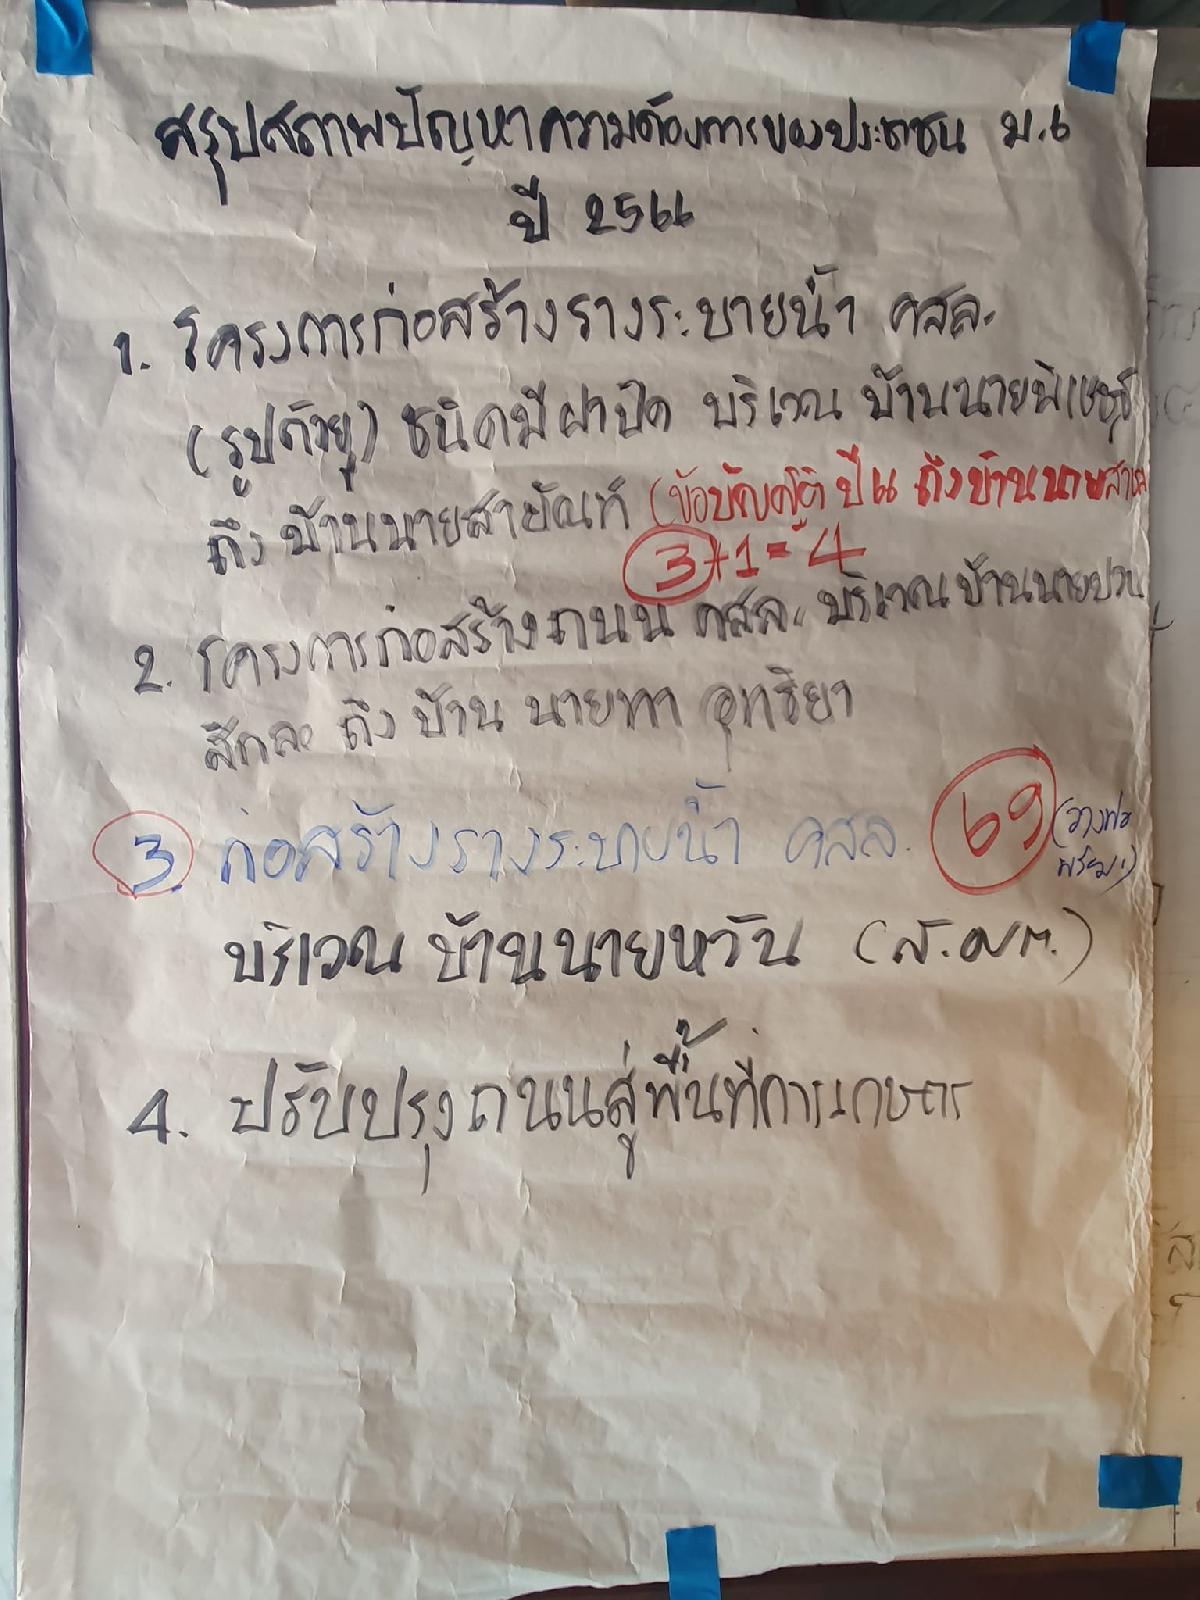 สรุปสภาพปัญหาความต้องการของประชาชน ม.6
ปี 2566
1. โครงการก่อสร้างรางระบายน้ำ คสล.
(รูปตัวยู) ชนิดมีฝาปิด บริเวณ บ้านนายพิเชษฐ์
ถึง บ้านนายสายัณห์ (ข้อบัญญัติ ปี ถึงบ้านนาย
3+1=4
2. โครงการก่อสร้างถนน คสล. บริเวณบ้านนายปวน
สีกละ ถึง บ้าน นายทา อุทธิยา
3. ก่อสร้างรางระบายน้ำ คสล. 69 (วางท่อ
พร้อม)
บริเวณ บ้านนายหวัน (ส.อบต.)
4. ปรับปรุงถนนสู่พื้นที่การเกษตร